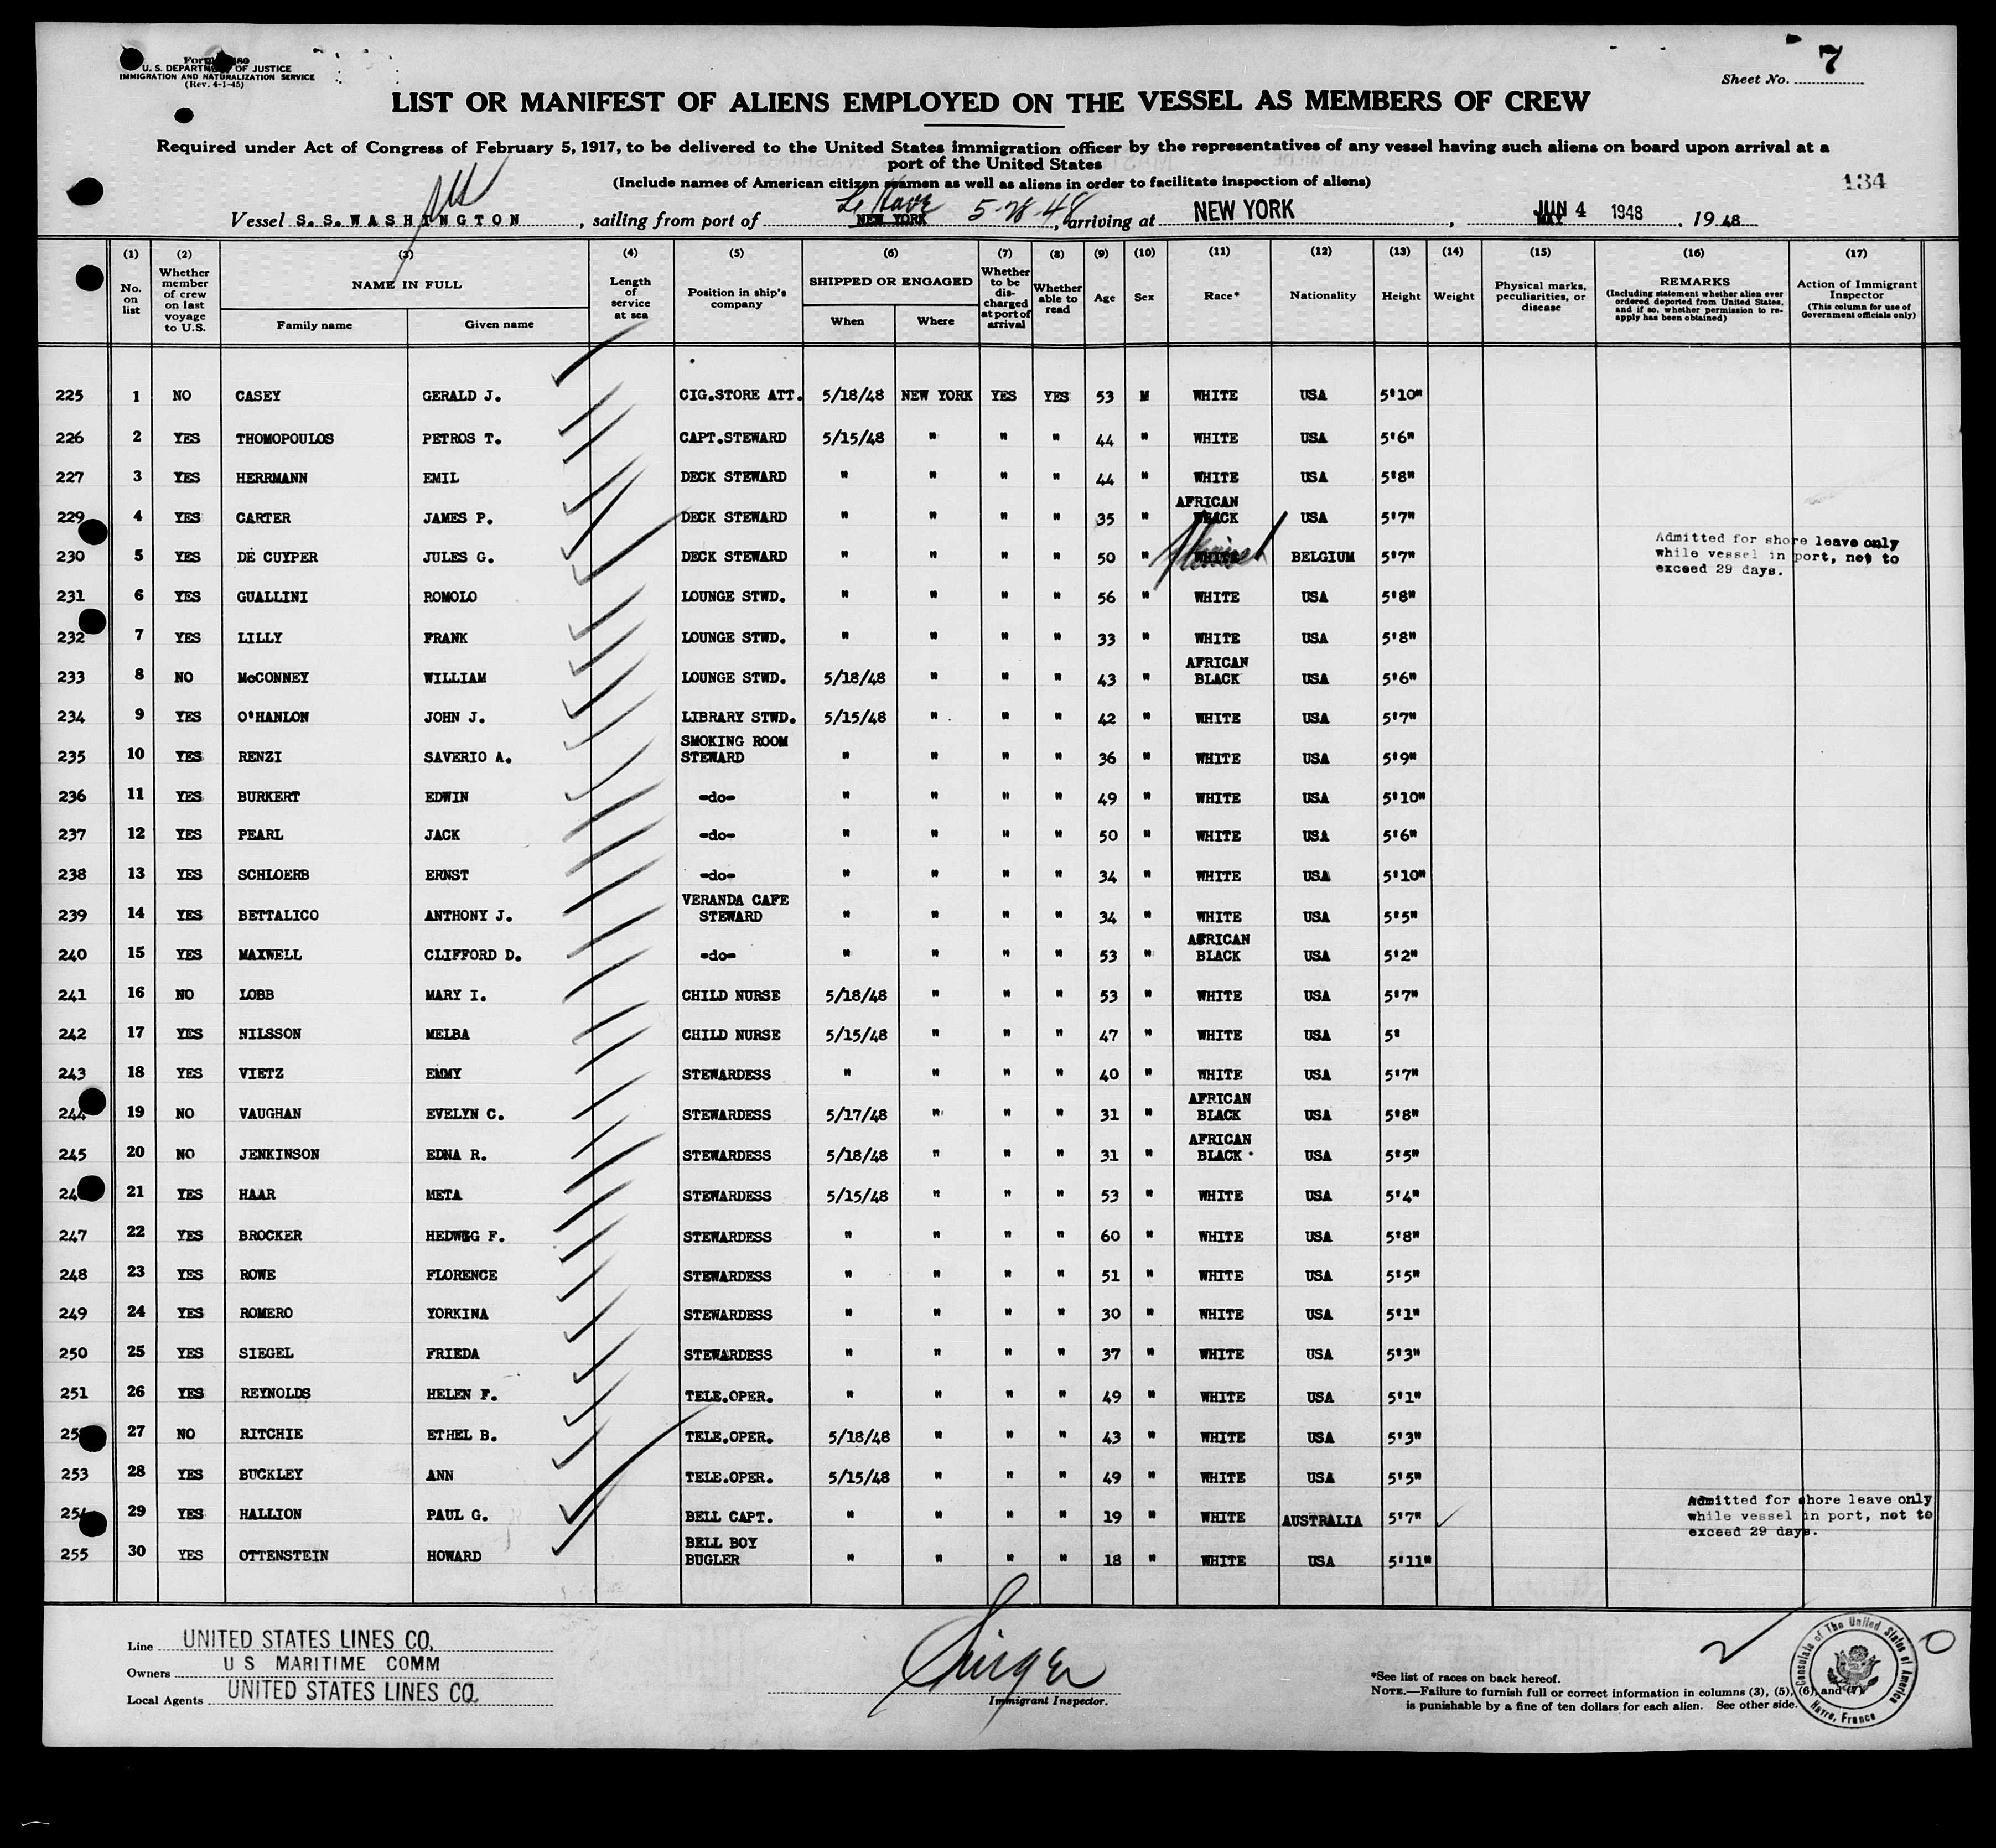 Form 480
U. S. DEPARTMENT OF JUSTICE
IMMIGRATION AND NATURALIZATION SERVICE
(Rev. 4-1-45)
Sheet No. 7
LIST OR MANIFEST OF ALIENS EMPLOYED ON THE VESSEL AS MEMBERS OF CREW
Required under Act of Congress of February 5, 1917, to be delivered to the United States immigration officer by the representatives of any vessel having such aliens on board upon arrival at a
port of the United States
(Include names of American citizen seamen as well as aliens in order to facilitate inspection of aliens)
134
Vessel S.S. WASHINGTON, sailing from port of NEW YORK Le Havre 5-28-48, arriving at NEW YORK, JUN 4 1948, 1948
(1) (2) (3) (4) (5) (6) (7) (8) (9) (10) (11) (12) (13) (14) (15) (16) (17)
No. on list
Whether member of crew on last voyage to U.S.
NAME IN FULL
Family name
Given name
Length of service at sea
Position in ship's company
SHIPPED OR ENGAGED
When
Where
Whether to be discharged at port of arrival
Whether able to read
Age
Sex
Race*
Nationality
Height
Weight
Physical marks, peculiarities, or disease
REMARKS
(Including statement whether alien ever ordered deported from United States, and if so, whether permission to re-apply has been obtained)
Action of Immigrant Inspector
(This column for use of Government officials only)
225 1 NO CASEY GERALD J. CIG.STORE ATT. 5/18/48 NEW YORK YES YES 53 M WHITE USA 5'10"
226 2 YES THOMOPOULOS PETROS T. CAPT.STEWARD 5/15/48 " " " 44 " WHITE USA 5'6"
227 3 YES HERRMANN EMIL DECK STEWARD " " " " 44 " WHITE USA 5'8"
229 4 YES CARTER JAMES P. DECK STEWARD " " " " 35 " AFRICAN BLACK USA 5'7"
230 5 YES DE CUYPER JULES G. DECK STEWARD " " " " 50 " WHITE Flemish BELGIUM 5'7" Admitted for shore leave only while vessel in port, not to exceed 29 days.
231 6 YES GUALLINI ROMOLO LOUNGE STWD. " " " " 56 " WHITE USA 5'8"
232 7 YES LILLY FRANK LOUNGE STWD. " " " " 33 " WHITE USA 5'8"
233 8 NO McCONNEY WILLIAM LOUNGE STWD. 5/18/48 " " " 43 " AFRICAN BLACK USA 5'6"
234 9 YES O'HANLON JOHN J. LIBRARY STWD. 5/15/48 " " " 42 " WHITE USA 5'7"
235 10 YES RENZI SAVERIO A. SMOKING ROOM STEWARD " " " " 36 " WHITE USA 5'9"
236 11 YES BURKERT EDWIN -do- " " " " 49 " WHITE USA 5'10"
237 12 YES PEARL JACK -do- " " " " 50 " WHITE USA 5'6"
238 13 YES SCHLOERB ERNST -do- " " " " 34 " WHITE USA 5'10"
239 14 YES BETTALICO ANTHONY J. VERANDA CAFE STEWARD " " " " 34 " WHITE USA 5'5"
240 15 YES MAXWELL CLIFFORD D. -do- " " " " 53 " AFRICAN BLACK USA 5'2"
241 16 NO LOBB MARY I. CHILD NURSE 5/18/48 " " " 53 " WHITE USA 5'7"
242 17 YES NILSSON MELBA CHILD NURSE 5/15/48 " " " 47 " WHITE USA 5'
243 18 YES VIETZ EMMY STEWARDESS " " " " 40 " WHITE USA 5'7"
244 19 NO VAUGHAN EVELYN C. STEWARDESS 5/17/48 " " " 31 " AFRICAN BLACK USA 5'8"
245 20 NO JENKINSON EDNA R. STEWARDESS 5/18/48 " " " 31 " AFRICAN BLACK USA 5'5"
24 21 YES HAAR META STEWARDESS 5/15/48 " " " 53 " WHITE USA 5'4"
247 22 YES BROCKER HEDWIG F. STEWARDESS " " " " 60 " WHITE USA 5'8"
248 23 YES ROWE FLORENCE STEWARDESS " " " " 51 " WHITE USA 5'5"
249 24 YES ROMERO YORKINA STEWARDESS " " " " 30 " WHITE USA 5'1"
250 25 YES SIEGEL FRIEDA STEWARDESS " " " " 37 " WHITE USA 5'3"
251 26 YES REYNOLDS HELEN F. TELE.OPER. " " " " 49 " WHITE USA 5'1"
25 27 NO RITCHIE ETHEL B. TELE.OPER. 5/18/48 " " " 43 " WHITE USA 5'3"
253 28 YES BUCKLEY ANN TELE.OPER. 5/15/48 " " " 49 " WHITE USA 5'5"
254 29 YES HALLION PAUL G. BELL CAPT. " " " " 19 " WHITE AUSTRALIA 5'7" Admitted for shore leave only while vessel in port, not to exceed 29 days.
255 30 YES OTTENSTEIN HOWARD BELL BOY BUGLER " " " " 18 " WHITE USA 5'11"
Line UNITED STATES LINES CO.
Owners U S MARITIME COMM
Local Agents UNITED STATES LINES CO.
Singer
Immigrant Inspector.
*See list of races on back hereof.
NOTE.—Failure to furnish full or correct information in columns (3), (5), (6), and (7)
is punishable by a fine of ten dollars for each alien. See other side.
Consulate of The United States of America
Havre, France